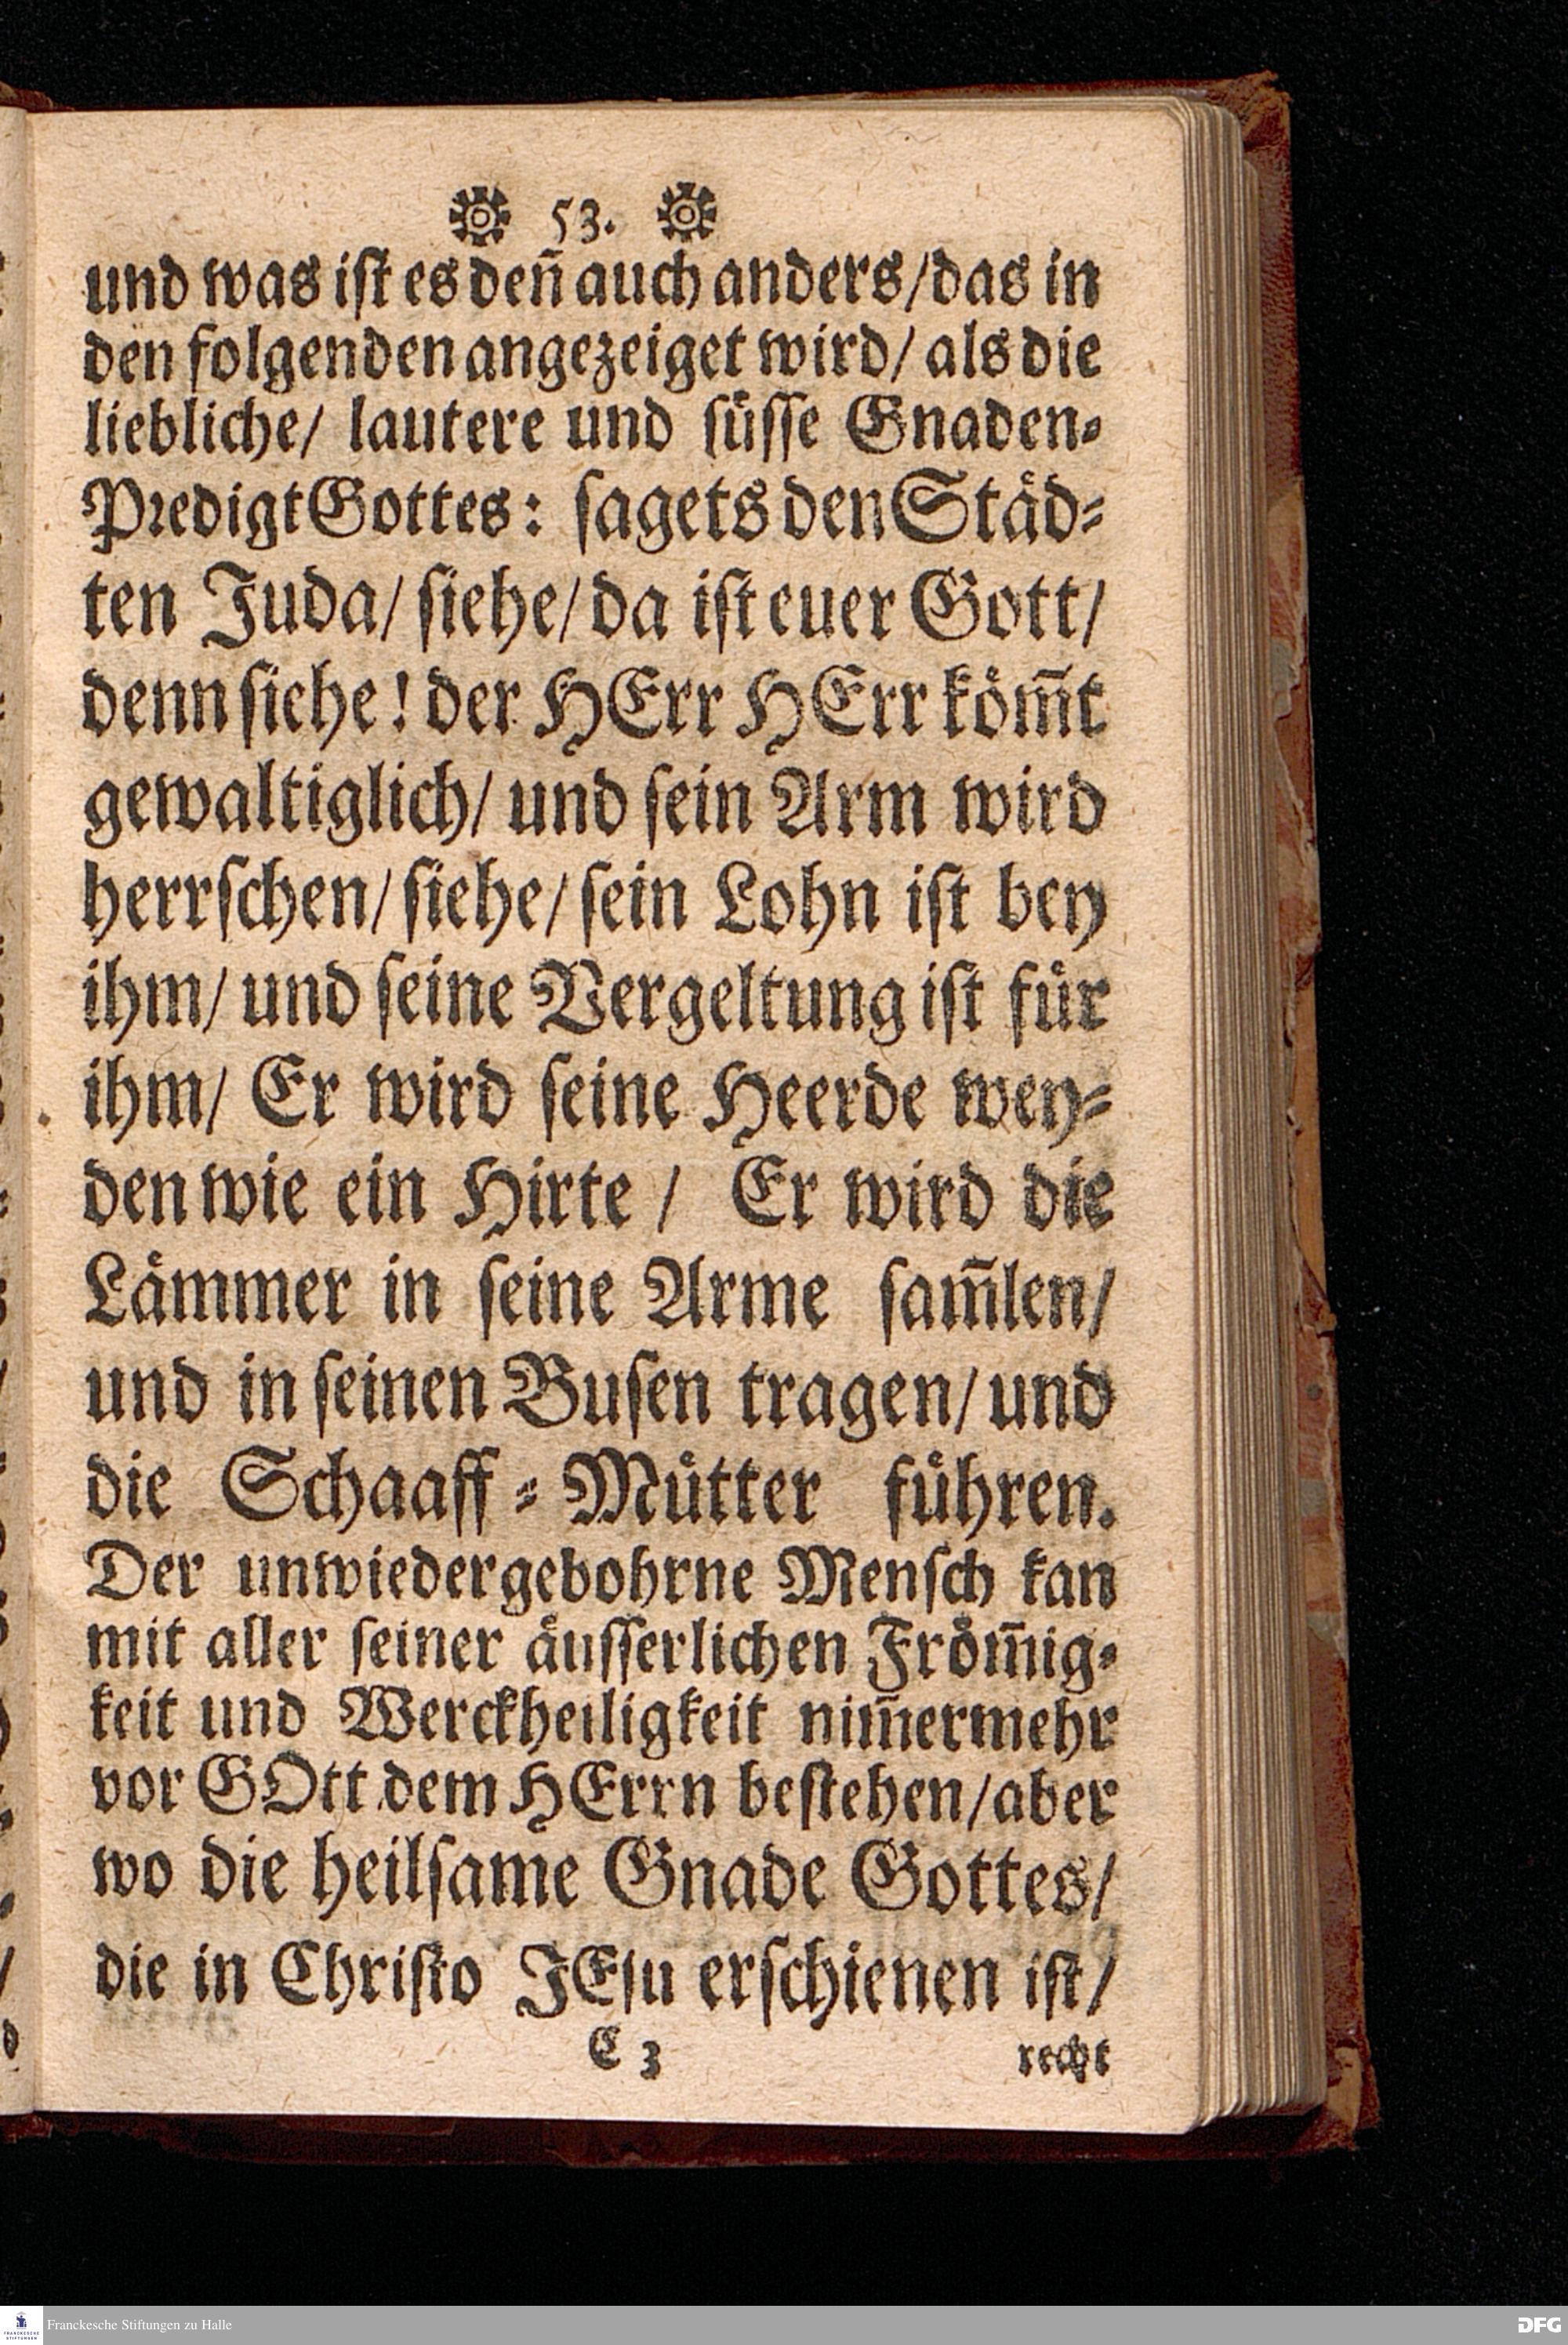 53.
und was iſt es deñ auch anders/das in
den folgenden angezeiget wird/ als die
liebliche/ lautere und ſuͤſſe Gnaden-
Predigt Gottes: ſagets den Staͤd-
ten Juda/ ſiehe/ da iſt euer Gott/
denn ſiehe! der HErr HErr koͤm̃t
gewaltiglich/ und ſein Arm wird
herrſchen/ ſiehe/ ſein Lohn iſt bey
ihm/ und ſeine Vergeltung iſt fuͤr
ihm/ Er wird ſeine Heerde wey-
den wie ein Hirte / Er wird die
Laͤmmer in ſeine Arme ſam̃len/
und in ſeinen Buſen tragen/ und
die Schaaff-Muͤtter fuͤhren.
Der unwiedergebohrne Menſch kan
mit aller ſeiner aͤuſſerlichen Froͤm̃ig-
keit und Werckheiligkeit nim̃ermehr
vor GOtt dem HErrn beſtehen/aber
wo die heilſame Gnade Gottes/
die in Chriſto JEſu erſchienen iſt/
C 3 recht
FRANCKESCHE STIFTUNGEN
Franckesche Stiftungen zu Halle
DFG